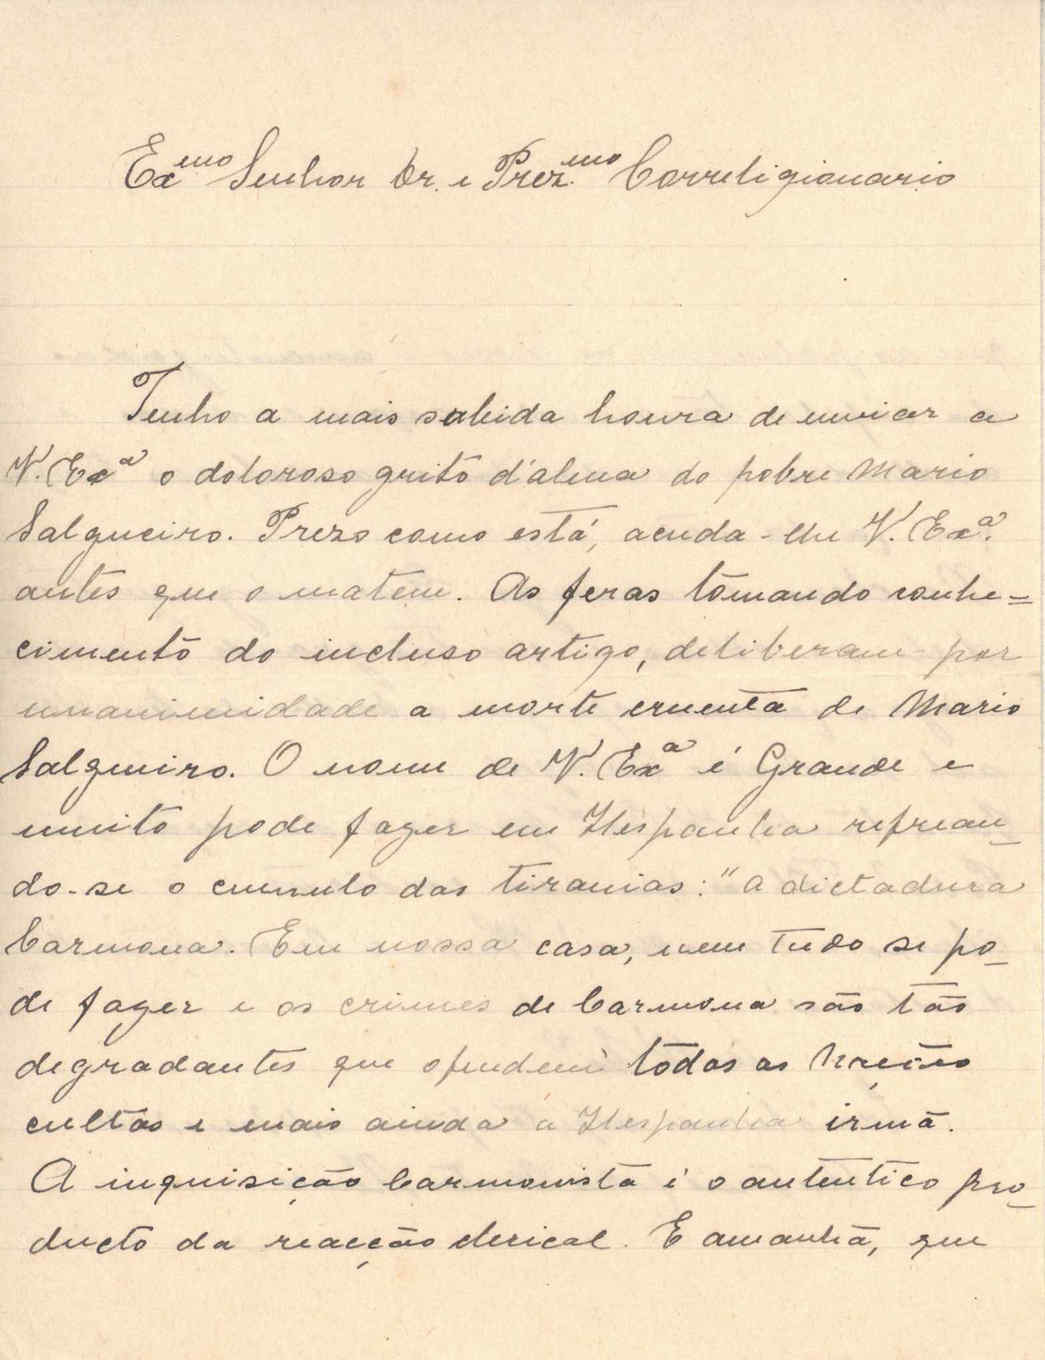 Exmo Senhor Dr. e Prezmo Correligionario
Tenho a mais subida honra de enviar a
V. Exa o doloroso grito d'alma do pobre Mario
Salgueiro. Prezo como está, acuda-lhe V. Exa.
antes que o matem. As feras tomando conhe=
cimento do incluso artigo, deliberam por
unanimidade a morte cruenta de Mario
Salgueiro. O nome de V. Exa é Grande e
muito pode fazer em Hespanha refrean-
do-se o cumulo das tiranias: "a dictadura
Carmona. Em nossa casa, nem tudo se po-
de fazer e os crimes de Carmona são tão
degradantes que ofendem todas as Nações
cultas e mais ainda a Hespanha irmã.
A inquisição Carmonista é o autentico pro-
ducto da reacção clerical. E amanhã, que